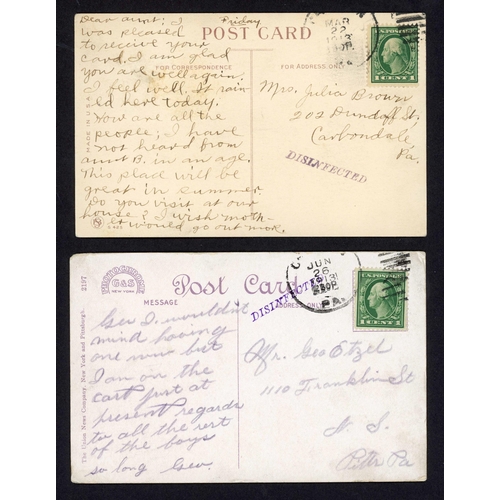 Dear aunt; I
was pleased
to receive your
card, I am glad
you are well again.
I feel well. It rain-
ed here today.
How are all the
people; I have
not heard from
aunt B. in an age.
This place will be
great in summer
Do you visit at our
house? I wish moth-
er would go out more.
Friday
POST CARD
FOR CORRESPONDENCE
FOR ADDRESS ONLY
MADE IN U.S.A.
MAR
22
PA.
1 CENT 1
Mrs. Julia Brown
202 Dundaff St.
Carbondale
Pa.
DISINFECTED
PHOTOCHROME
G&S
NEW YORK
2197
Post Card
MESSAGE
ADDRESS ONLY
The Union News Company, New York and Pittsburgh.
Gee I wouldn't
mind having
one now but
I am on the
cart just at
present regards
to all the rest
of the boys
so long Geo.
DISINFECTED
JUN
26
1913
PA.
1 CENT 1
Mr. Geo Etzel
1110 Franklin St
N. S.
Pitts Pa